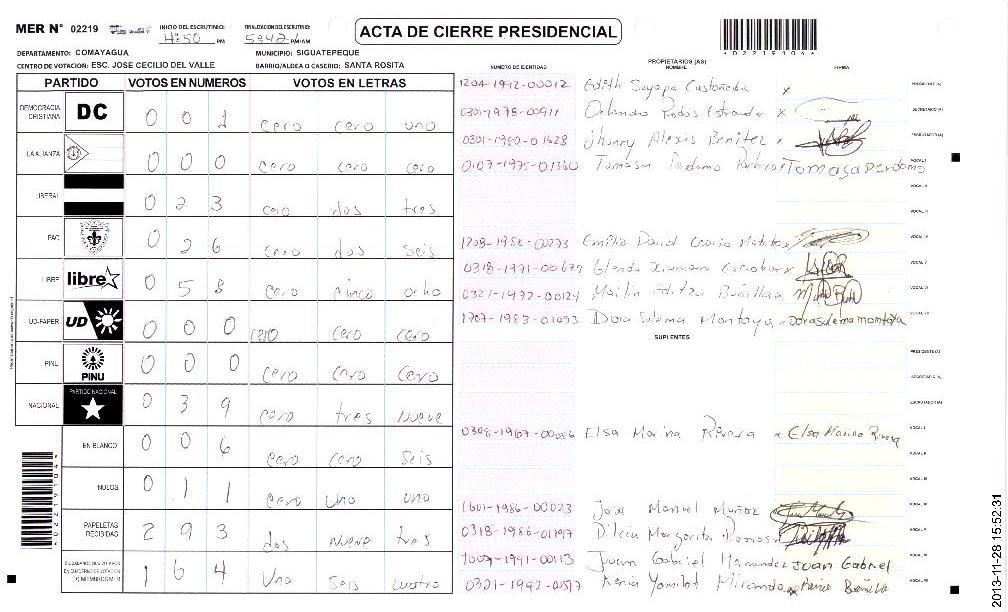 MER Nº 02219
INICIO DEL ESCRUTINIO: 4:50 PM
FINALIZACION DEL ESCRUTINIO: PM/AM
ACTA DE CIERRE PRESIDENCIAL
4022191044
DEPARTAMENTO: COMAYAGUA
MUNICIPIO: SIGUATEPEQUE
CENTRO DE VOTACION: ESC. JOSE CECILIO DEL VALLE
BARRIO/ALDEA O CASERIO: SANTA ROSITA
PARTIDO VOTOS EN NUMEROS VOTOS EN LETRAS
DEMOCRACIA CRISTIANA DC 0 0 1 cero cero uno
LA ALIANZA 0 0 0 cero cero cero
LIBERAL 0 2 3 cero dos tres
PAC 0 2 6 cero dos seis
LIBRE libre 0 5 8 cero cinco ocho
UD-FAPER UD 0 0 0 cero cero cero
PINU PINU 0 0 0 cero cero cero
NACIONAL PARTIDO NACIONAL 0 3 9 cero tres nueve
EN BLANCO 0 0 6 cero cero seis
NULOS 0 1 1 cero uno uno
PAPELETAS RECIBIDAS 2 9 3 dos nueve tres
CIUDADANOS QUE VOTARON EN CUADERNO DE VOTACION (+) MIEMBROS MER 1 6 4 uno seis cuatro
PROPIETARIOS (AS)
NUMERO DE IDENTIDAD NOMBRE FIRMA
1204-1992-00012 Edith Suyapa Castañeda x PRESIDENTE (A)
0301-1978-00911 Orlando Rodas Estrada x SECRETARIO (A)
0301-1980-01628 Jhonny Alexis Benitez x ESCRUTADOR (A)
0107-1975-01360 Tomasa Perdomo Tomasa Perdomo VOCAL I
VOCAL II
VOCAL III
1208-1958-00273 Emilio David Osorio x VOCAL IV
0318-1971-00679 Glenda Xiomara Escobar x VOCAL V
0321-1972-00124 Bonilla x VOCAL VI
1707-1983-01093 Dora Sulema Montoya x Dora sulema montoya VOCAL VII
SUPLENTES
PRESIDENTE (A)
SECRETARIO (A)
ESCRUTADOR (A)
0308-1967-00056 Elsa Marina Rivera x Elsa Marina Rivera VOCAL I
VOCAL II
VOCAL III
1601-1986-00023 Jose Manuel Muñoz VOCAL IV
0318-1986-01197 Dilcia Margarita VOCAL V
1991-00113 Juan Gabriel Hernandez Juan Gabriel VOCAL VI
0321-1992-00517 Kenia Yamilet Miranda x VOCAL VII
2013-11-28 15:52:31